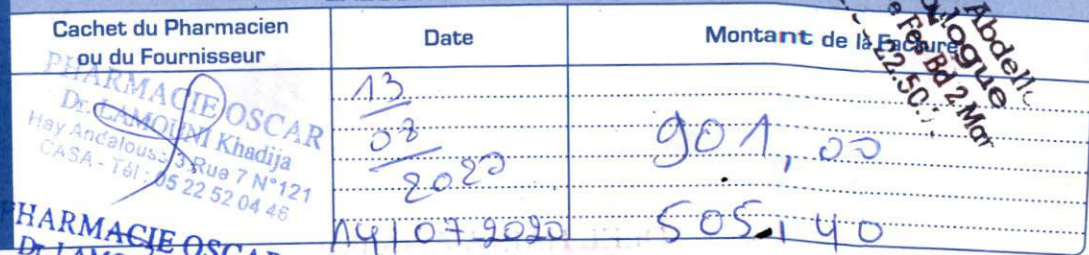 Cachet du Pharmacien
ou du Fournisseur
Date
Montant de la Facture
PHARMACIE OSCAR
Dr. LAMOUNI Khadija
Hay Andalouss 3 Rue 7 N°121
CASA - Tél : 05 22 52 04 46
13
/
08
/
2020
901,00
PHARMACIE OSCAR
14/07-2020
505,40
Abdell
logue
Fes Bd 2 Mar
22.50